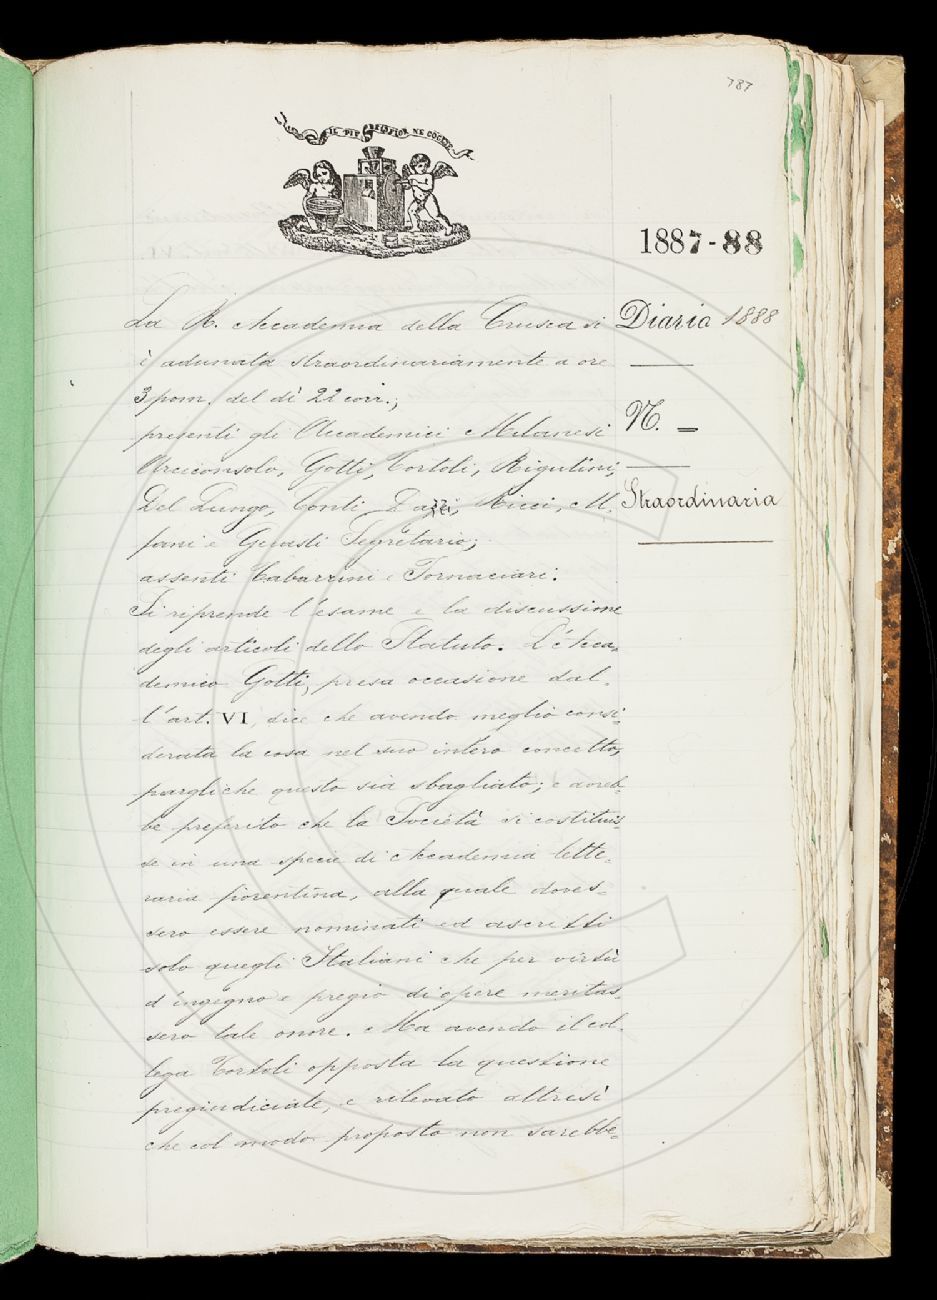 787
IL PIÙ BEL FIOR NE COGLIE
1887-88
Diario 1888
N. =
Straordinaria
La R. Accademia della Crusca si
è adunata straordinariamente a ore
3 pom. del dì 22 corr.;
presenti gli Accademici Milanesi
Arciconsolo, Gotti, Tortoli, Rigutini,
Del Lungo, Conti, Dazzi, Ricci, A.
pani e Guasti Segretario;
assenti Tabarrini e Fornaciari.
Si riprende l'esame e la discussione
degli articoli dello Statuto. L'Acca-
demico Gotti, presa occasione dal-
l'art. VI, dice che avendo meglio consi-
derata la cosa nel suo intero concetto,
pargli che questo sia sbagliato; e avreb-
be preferito che la Società si costituis-
se in una specie di Accademia lette-
raria fiorentina, alla quale doves-
sero essere nominati ed ascritti
solo quegli Italiani che per virtù
d'ingegno e pregio di opere meritas-
sero tale onore. Ma avendo il col-
lega Tortoli opposta la questione
pregiudiciale, e rilevato altresì
che col modo proposto non sarebbe-